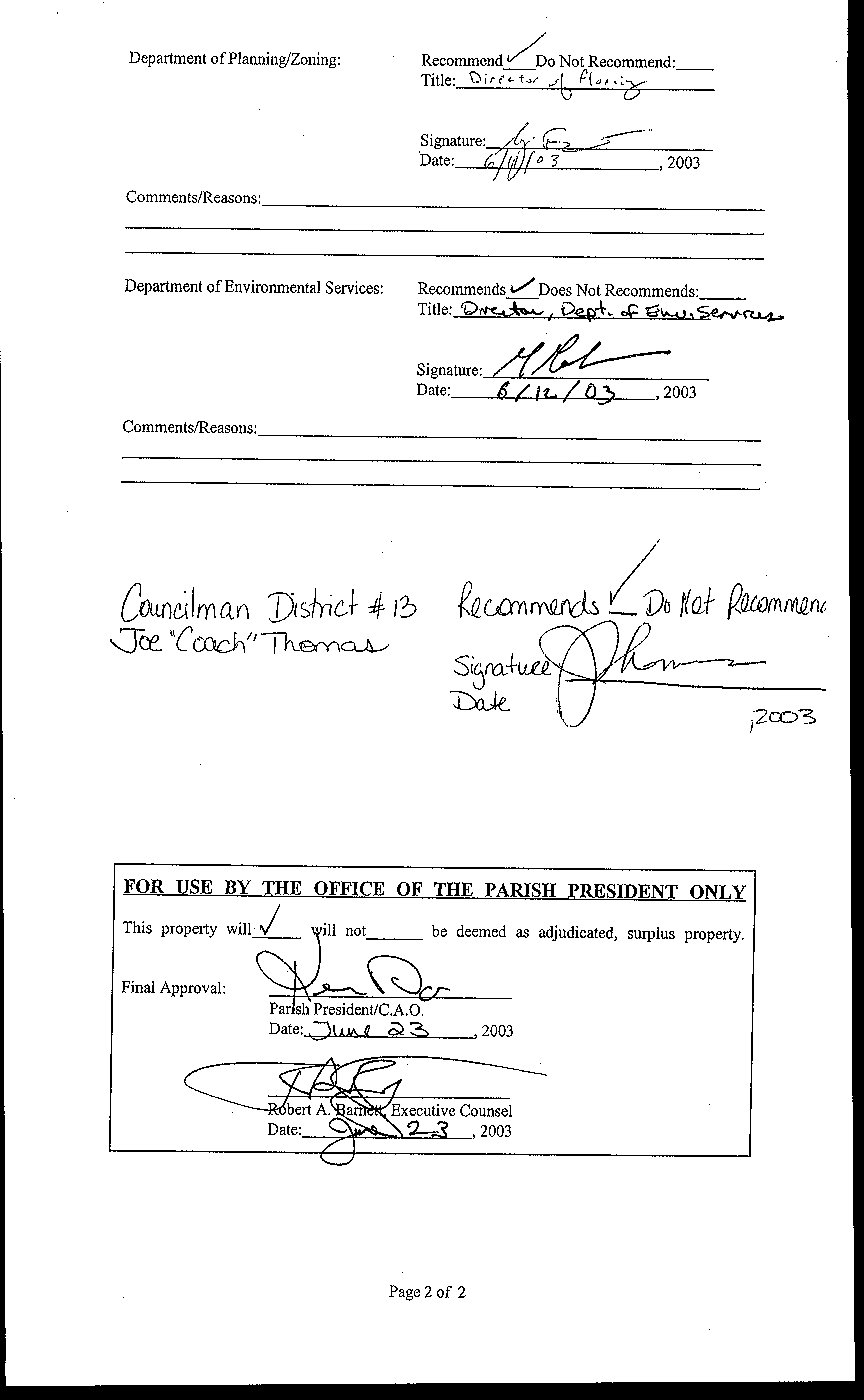 Department of Planning/Zoning: Recommend ✓ Do Not Recommend:
Title: Director of Planning
Signature:
Date: 6/11/03 , 2003
Comments/Reasons:
Department of Environmental Services: Recommends ✓ Does Not Recommends:
Title: Director, Dept. of Env. Services
Signature:
Date: 6/12/03 , 2003
Comments/Reasons:
Councilman District #13 Recommends ✓ Do Not Recommen
Joe "Coach" Thomas
Signature
Date ,2003
FOR USE BY THE OFFICE OF THE PARISH PRESIDENT ONLY
This property will ✓ will not be deemed as adjudicated, surplus property.
Final Approval:
Parish President/C.A.O.
Date: June 23 , 2003
Robert A. Barnett, Executive Counsel
Date: June 23 , 2003
Page 2 of 2